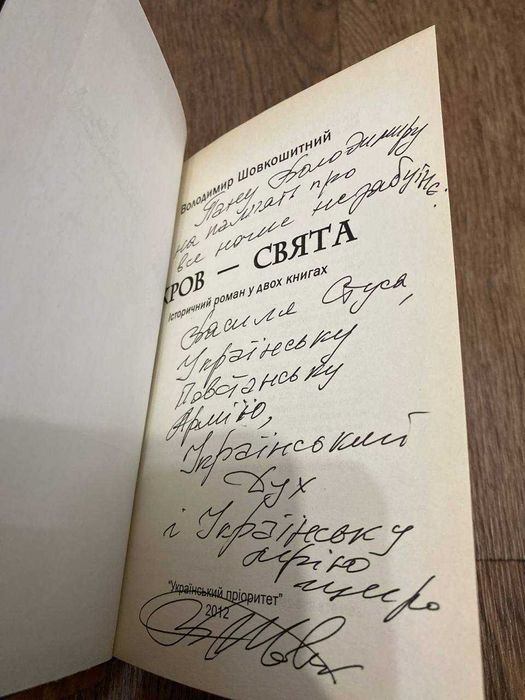 Володимир Шовкошитний
Пану Володимиру
на пам'ять про
все наше незабутнє:
КРОВ — СВЯТА
Історичний роман у двох книгах
Василя Стуса,
Українську
Повстанську
Армію,
Український
Дух
і Українську
мрію
щиро
"Український пріоритет"
2012